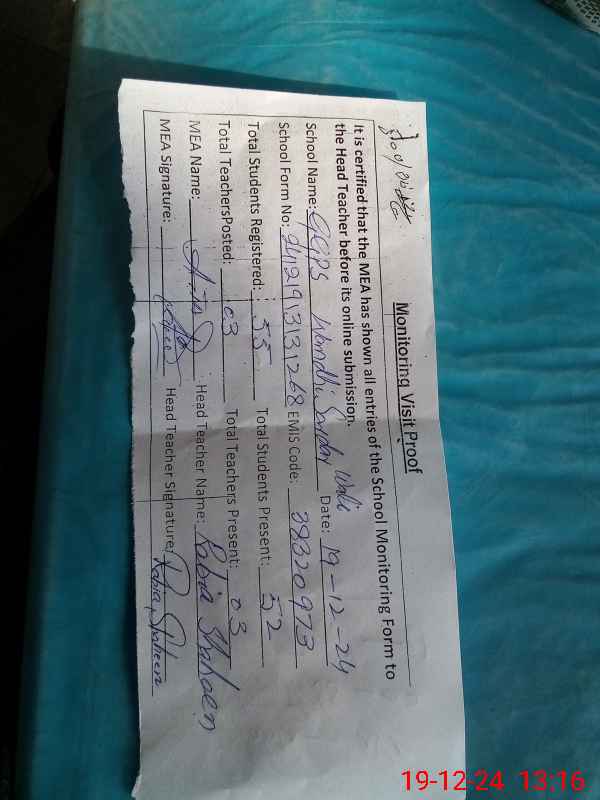 Monitoring Visit Proof
It is certified that the MEA has shown all entries of the School Monitoring Form to
the Head Teacher before its online submission.
School Name: GGPS Wandhi Wali Date: 19-12-24
School Form No: EMIS Code: 38320973
Total Students Registered: 55 Total Students Present: 52
Total TeachersPosted: 03 Total Teachers Present: 03
MEA Name: Head Teacher Name: Rabia Shaheen
MEA Signature: Head Teacher Signature: Rabia Shaheen
19-12-24 13:16